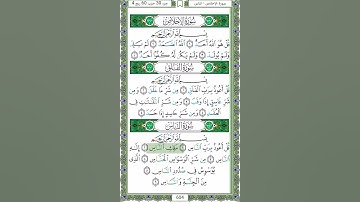 سورة الإخلاص - الناس جزء 30 حزب 60 ربع 4
سُورَةُ الإِخْلَاصِ
بِسْمِ اللَّهِ الرَّحْمَٰنِ الرَّحِيمِ
قُلْ هُوَ اللَّهُ أَحَدٌ ١ اللَّهُ الصَّمَدُ ٢ لَمْ يَلِدْ
وَلَمْ يُولَدْ ٣ وَلَمْ يَكُن لَّهُ كُفُوًا أَحَدٌ ٤
سُورَةُ الفَلَقِ
بِسْمِ اللَّهِ الرَّحْمَٰنِ الرَّحِيمِ
قُلْ أَعُوذُ بِرَبِّ الْفَلَقِ ١ مِن شَرِّ مَا خَلَقَ ٢ وَمِن
شَرِّ غَاسِقٍ إِذَا وَقَبَ ٣ وَمِن شَرِّ النَّفَّٰثَٰتِ فِي
الْعُقَدِ ٤ وَمِن شَرِّ حَاسِدٍ إِذَا حَسَدَ ٥
سُورَةُ النَّاسِ
بِسْمِ اللَّهِ الرَّحْمَٰنِ الرَّحِيمِ
قُلْ أَعُوذُ بِرَبِّ النَّاسِ ١ مَلِكِ النَّاسِ ٢ إِلَٰهِ
النَّاسِ ٣ مِن شَرِّ الْوَسْوَاسِ الْخَنَّاسِ ٤ الَّذِي
يُوَسْوِسُ فِي صُدُورِ النَّاسِ ٥
مِنَ الْجِنَّةِ وَالنَّاسِ ٦
604